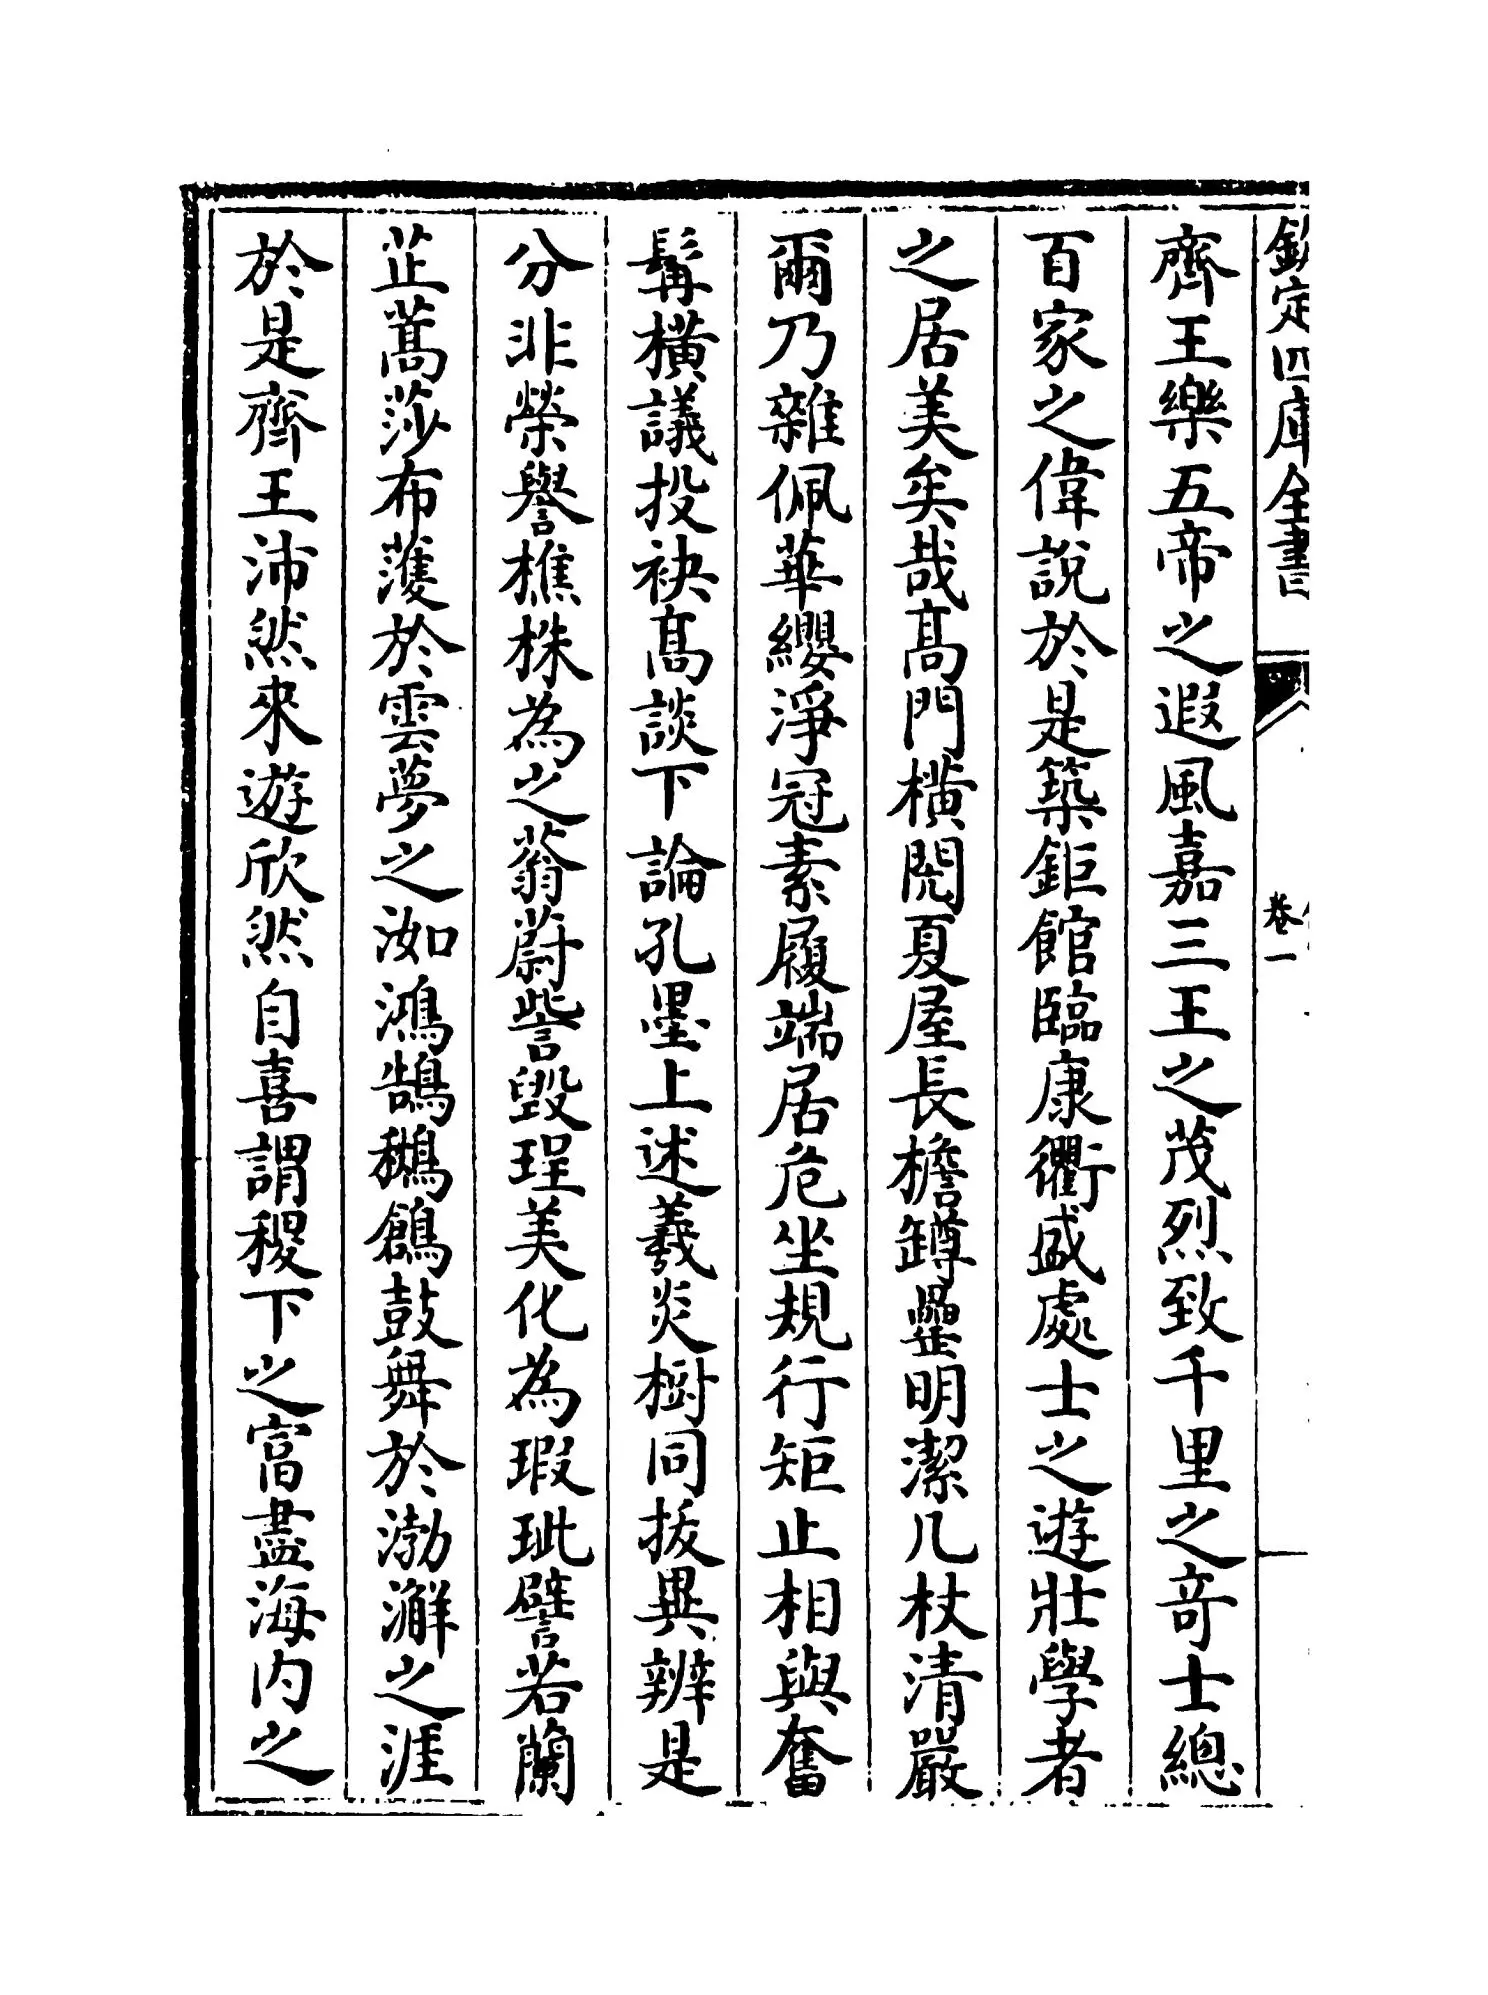 欽定四庫全書
卷一
齊王樂五帝之遐風嘉三王之茂烈致千里之奇士總
百家之偉說於是築鉅館臨康衢盛處士之遊壯學者
之居美矣哉髙門橫閌夏屋長檐罇罍明潔几杖清嚴
爾乃雜佩華纓淨冠素履端居危坐規行矩止相與奮
髯橫議投袂髙談下論孔墨上述羲炎樹同拔異辨是
分非榮譽樵株為之蓊蔚訾毀珵美化為瑕玼譬若蘭
芷蒿莎布濩於雲夢之洳鴻鵠鶖鶬鼓舞於渤澥之涯
於是齊王沛然來遊欣然自喜謂稷下之富盡海内之